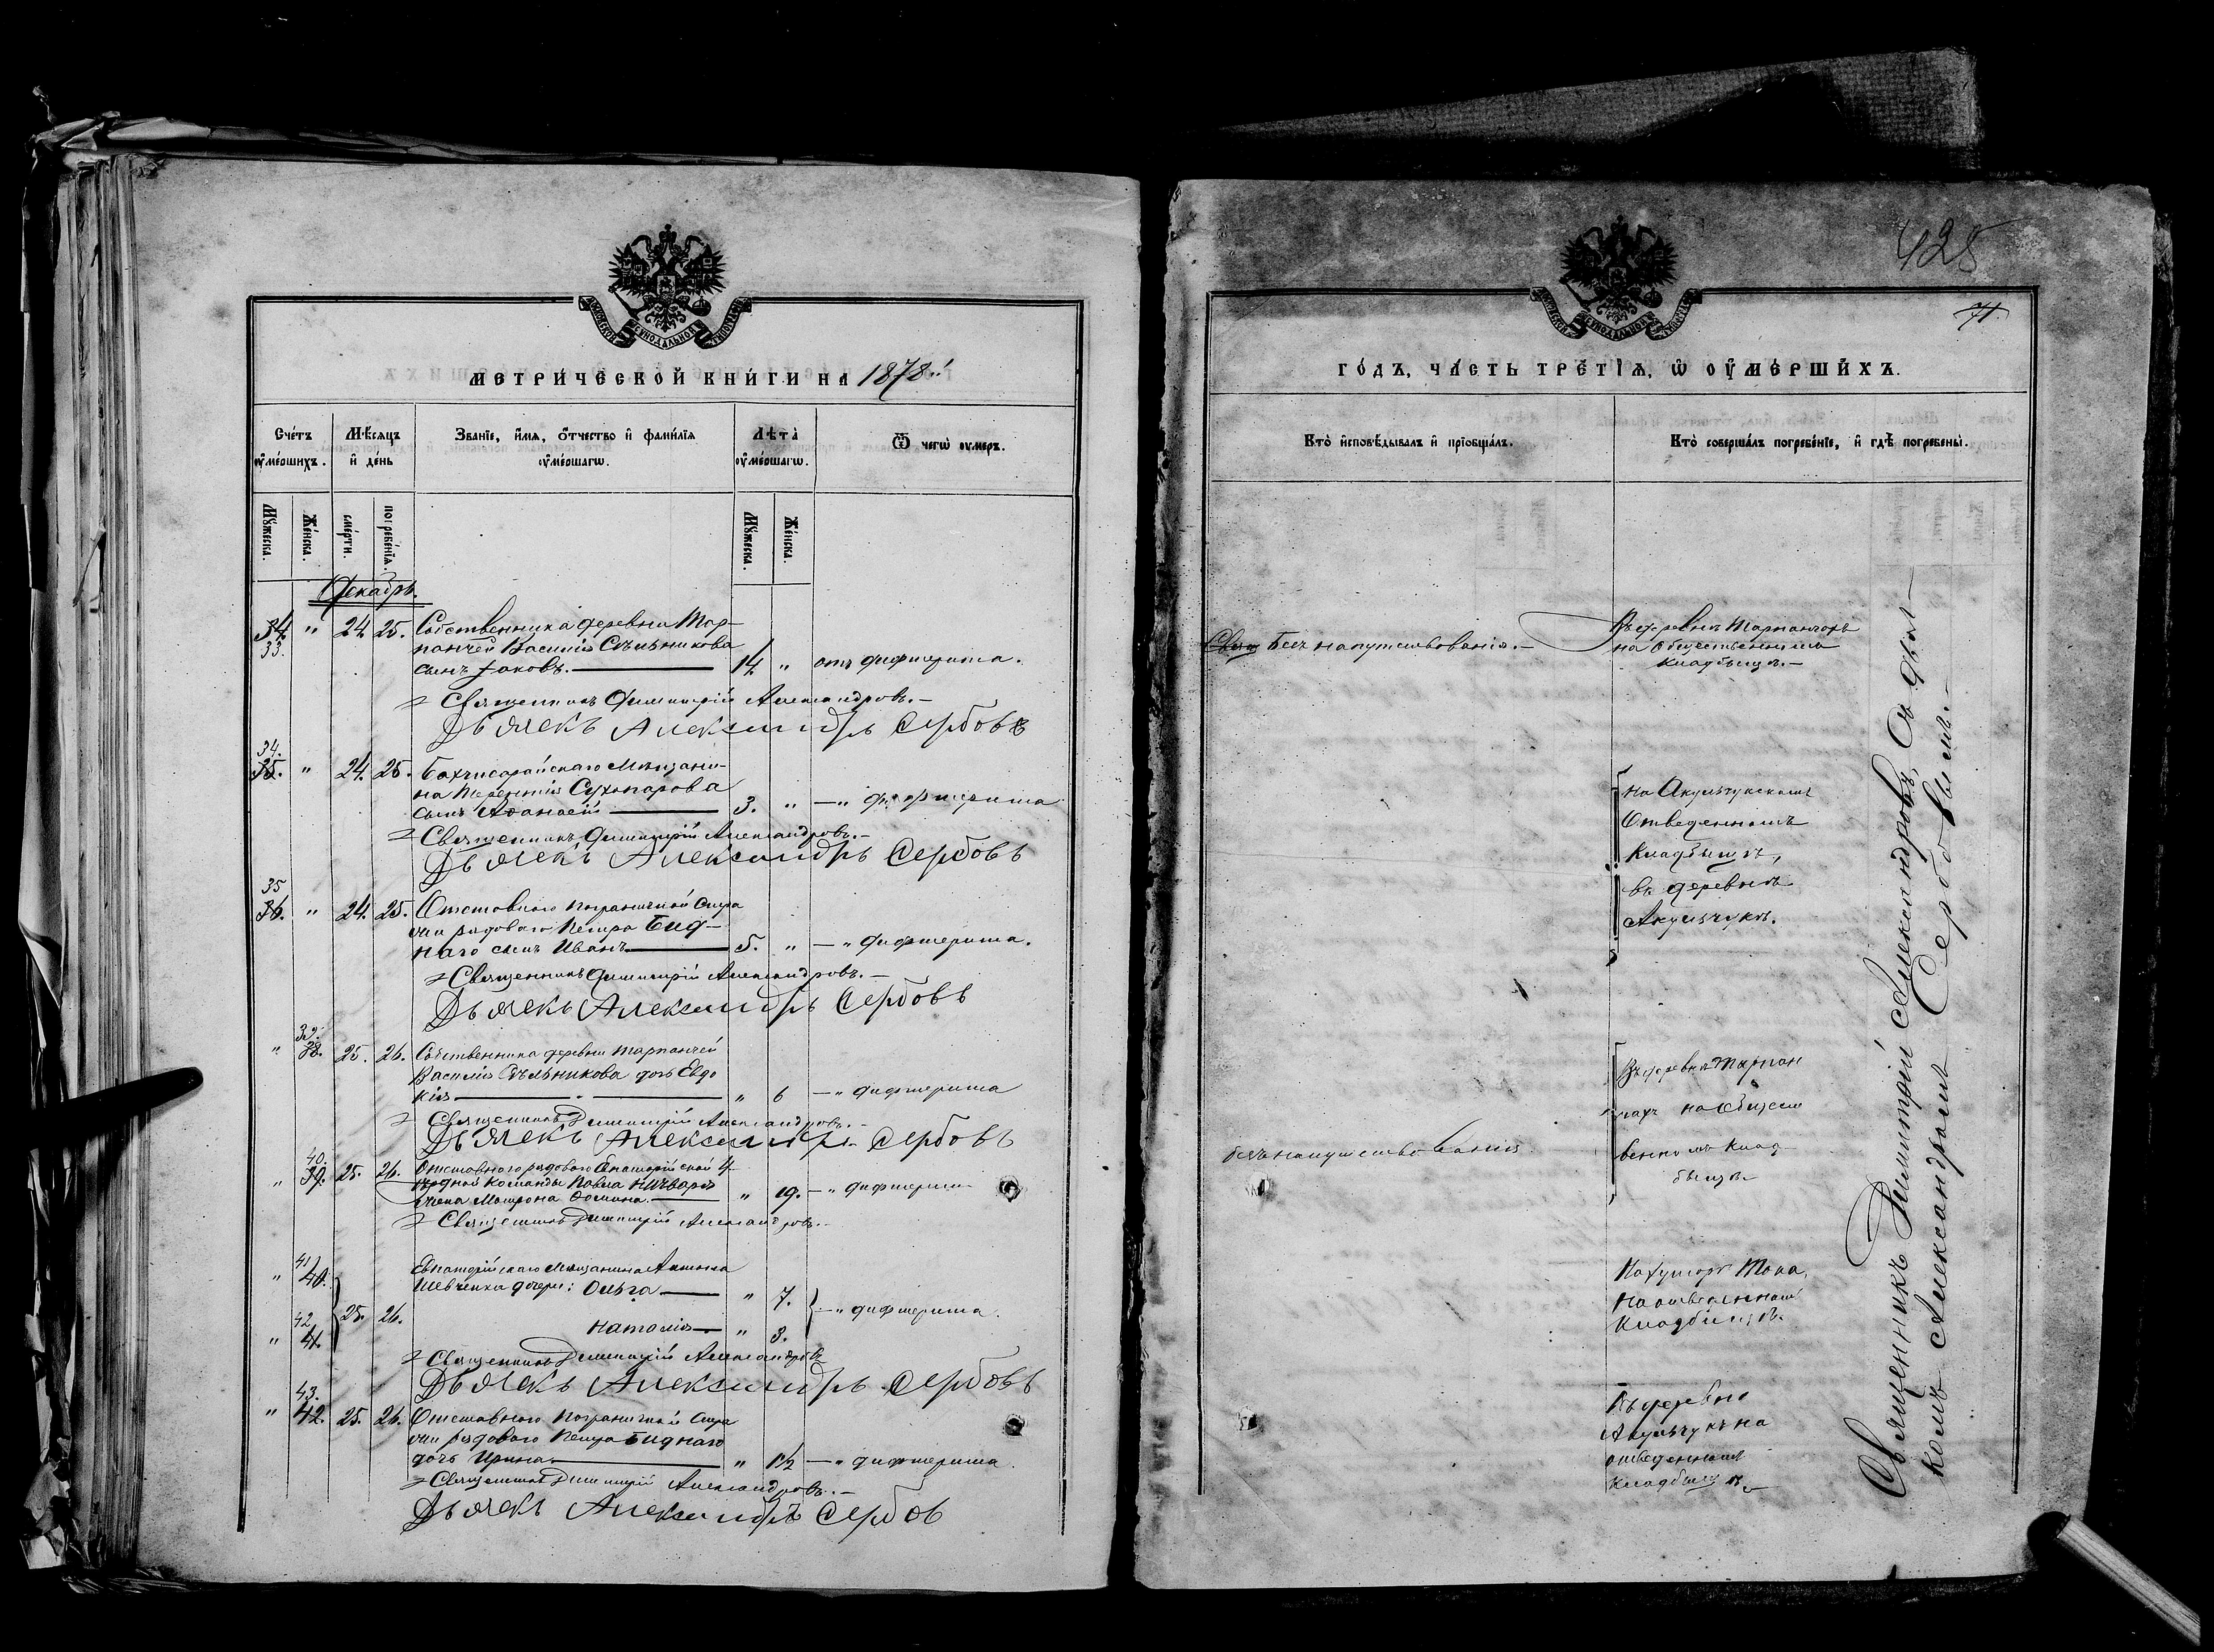 МЕТРИЧЕСКОЙ КНИГИ НА 1878й
Счетъ умершихъ.
Мѣсяцъ и день
Званіе, имя, отчество и фамилія умершагѡ.
Лѣта умершагѡ.
Ѿ чегѡ умеръ.
Мужеска.
Женска.
смерти.
погребенія.
Мужеска.
Женска.
Декабрь.
34. " 24. 25. Собственника деревни Тар-
33. панчей Василія Сѣльникова
сынъ Іаковъ. — 14 " отъ дифтерита.
Священникъ Димитрій Александровъ. —
Дьячекъ Александръ Сербовъ
34.
35. " 24. 25. Бахчисарайскаго Мѣщани-
на Терентія Сухопарова
сынъ Аѳанасій — 3. " — " дифтерита
Священникъ Димитрій Александровъ. —
Дьячекъ Александръ Сербовъ
35
36. " 24. 25. Отставнаго пограничной Стра
жи рядоваго Петра Бид-
наго сынъ Иванъ — 5. " — " дифтерита.
Священникъ Димитрій Александровъ. —
Дьячекъ Александръ Сербовъ
39.
" 38. 25. 26. Собственника деревни Тарпанчей
Василія Сѣльникова дочь Евдо
кія — " 6 — " дифтерита
Священникъ Димитрій Александровъ. —
Дьячекъ Александръ Сербовъ
40.
" 39. 25. 26. Отставнаго рядоваго Евпаторійской У-
ѣздной Команды Павла
жена Матрона — " 19. — " дифтерит
Священникъ Димитрій Александровъ. —
41
" 40. Евпаторійскаго Мѣщанина Антона
Шевченка дочери: Ольга — " 7.
25. 26. — " дифтерита.
42
" 41. Наталія — " 3.
Священникъ Димитрій Александровъ
Дьячекъ Александръ Сербовъ
43.
" 42. 25. 26. Отставнаго пограничной Стра
жи рядоваго Петра Биднаго
дочь Ирина — " 1½ — " дифтерита.
Священникъ Димитрій Александровъ. —
Дьячекъ Александръ Сербов
425
71.
ГОДЪ, ЧАСТЬ ТРЕТІѦ, Ѡ ОУМЕРШИХЪ.
Кто исповѣдывалъ и пріобщалъ.
Кто совершалъ погребеніе, и гдѣ погребены.
Безъ напутствованія. —
Въ деревнѣ Тарпанчахъ
на общественномъ
кладбищѣ. —
На Акульчукскомъ
Отведенномъ
Кладбищѣ,
въ деревнѣ
Акульчукъ.
безъ напутствованія
Въ деревнѣ Тарпан
чахъ на общест
венномъ клад
бищѣ
На хуторѣ Тока,
на отведенномъ
Кладбищѣ.
Въ деревнѣ
Акульчукъ на
отведенномъ
Кладбищѣ
Священникъ Димитрій Александровъ, Съ дьяч—
комъ Александромъ Сербовымъ. —